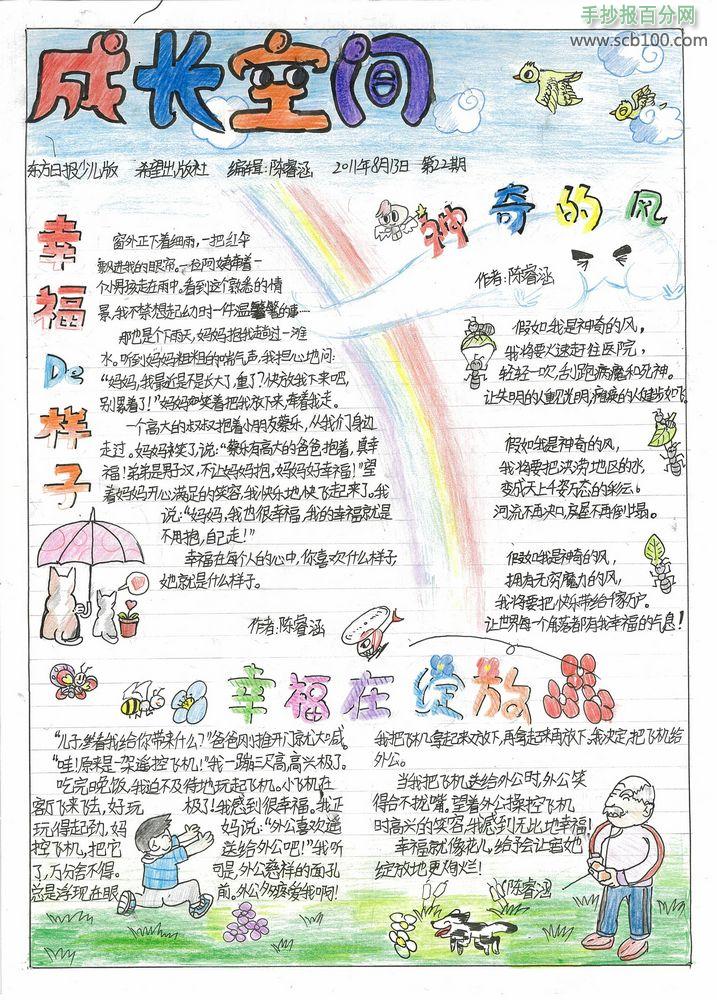 手抄报百分网
www.scb100.com
成长空间
东方日报少儿版 希望出版社 编辑:陈睿涵 2011年8月13日 第22期
幸福De样子
窗外正下着细雨,一把红伞
飘进我的眼帘。一位阿姨牵着一
个小男孩走在雨中。看到这个熟悉的情
景,我不禁想起幼时一件温馨的事……
那也是个下雨天,妈妈抱我趟过一滩
水。听到妈妈粗粗的喘气声,我担心地问:
“妈妈,我最近是不是长大了,重了?快放我下来吧,
别累着了!”妈妈笑着把我放下来,牵着我走。
一个高大的叔叔抱着小朋友蔡乐,从我们身边
走过。妈妈笑了,说:“蔡乐有高大的爸爸抱着,真幸
福!弟弟是男子汉,不让妈妈抱,妈妈好幸福!”望
着妈妈开心满足的笑容,我快乐地快飞起来了。我
说:“妈妈,我也很幸福,我的幸福就是
不用抱,自己走!”
幸福在每个人的心中,你喜欢什么样子
她就是什么样子。
作者:陈睿涵
神奇的风
作者:陈睿涵
假如我是神奇的风,
我将要火速赶往医院,
轻轻一吹,刮跑病魔和死神。
让失明的人重见光明,瘫痪的人健步如飞。
假如我是神奇的风,
我将要把洪涝地区的水,
变成天上千姿万态的彩云。
河流不再决口,房屋不再倒塌。
假如我是神奇的风,
拥有无穷魔力的风,
我将要把快乐带给千家万户。
让世界每一个角落都有我幸福的气息!
幸福在绽放
“儿子,猜猜我给你带来什么?”爸爸刚推开门就大喊。
“哇!原来是一架遥控飞机!”我一蹦三尺高,高兴极了。
吃完晚饭,我迫不及待地玩起飞机。小飞机在
客厅飞来飞去,好玩极了!我感到很幸福。我正
玩得起劲,妈妈说:“外公喜欢遥
控飞机,把它送给外公吧!”我听
了,万分舍不得。可是,外公慈祥的面孔
总是浮现在眼前。外公多疼爱我啊!
我把飞机拿起来又放下,再拿起来再放下。我决定,把飞机给
外公。
当我把飞机送给外公时,外公笑
得合不拢嘴。望着外公操控飞机
时高兴的笑容,我感到无比地幸福!
幸福就像花儿,给予会让她
绽放地更灿烂!
陈睿涵